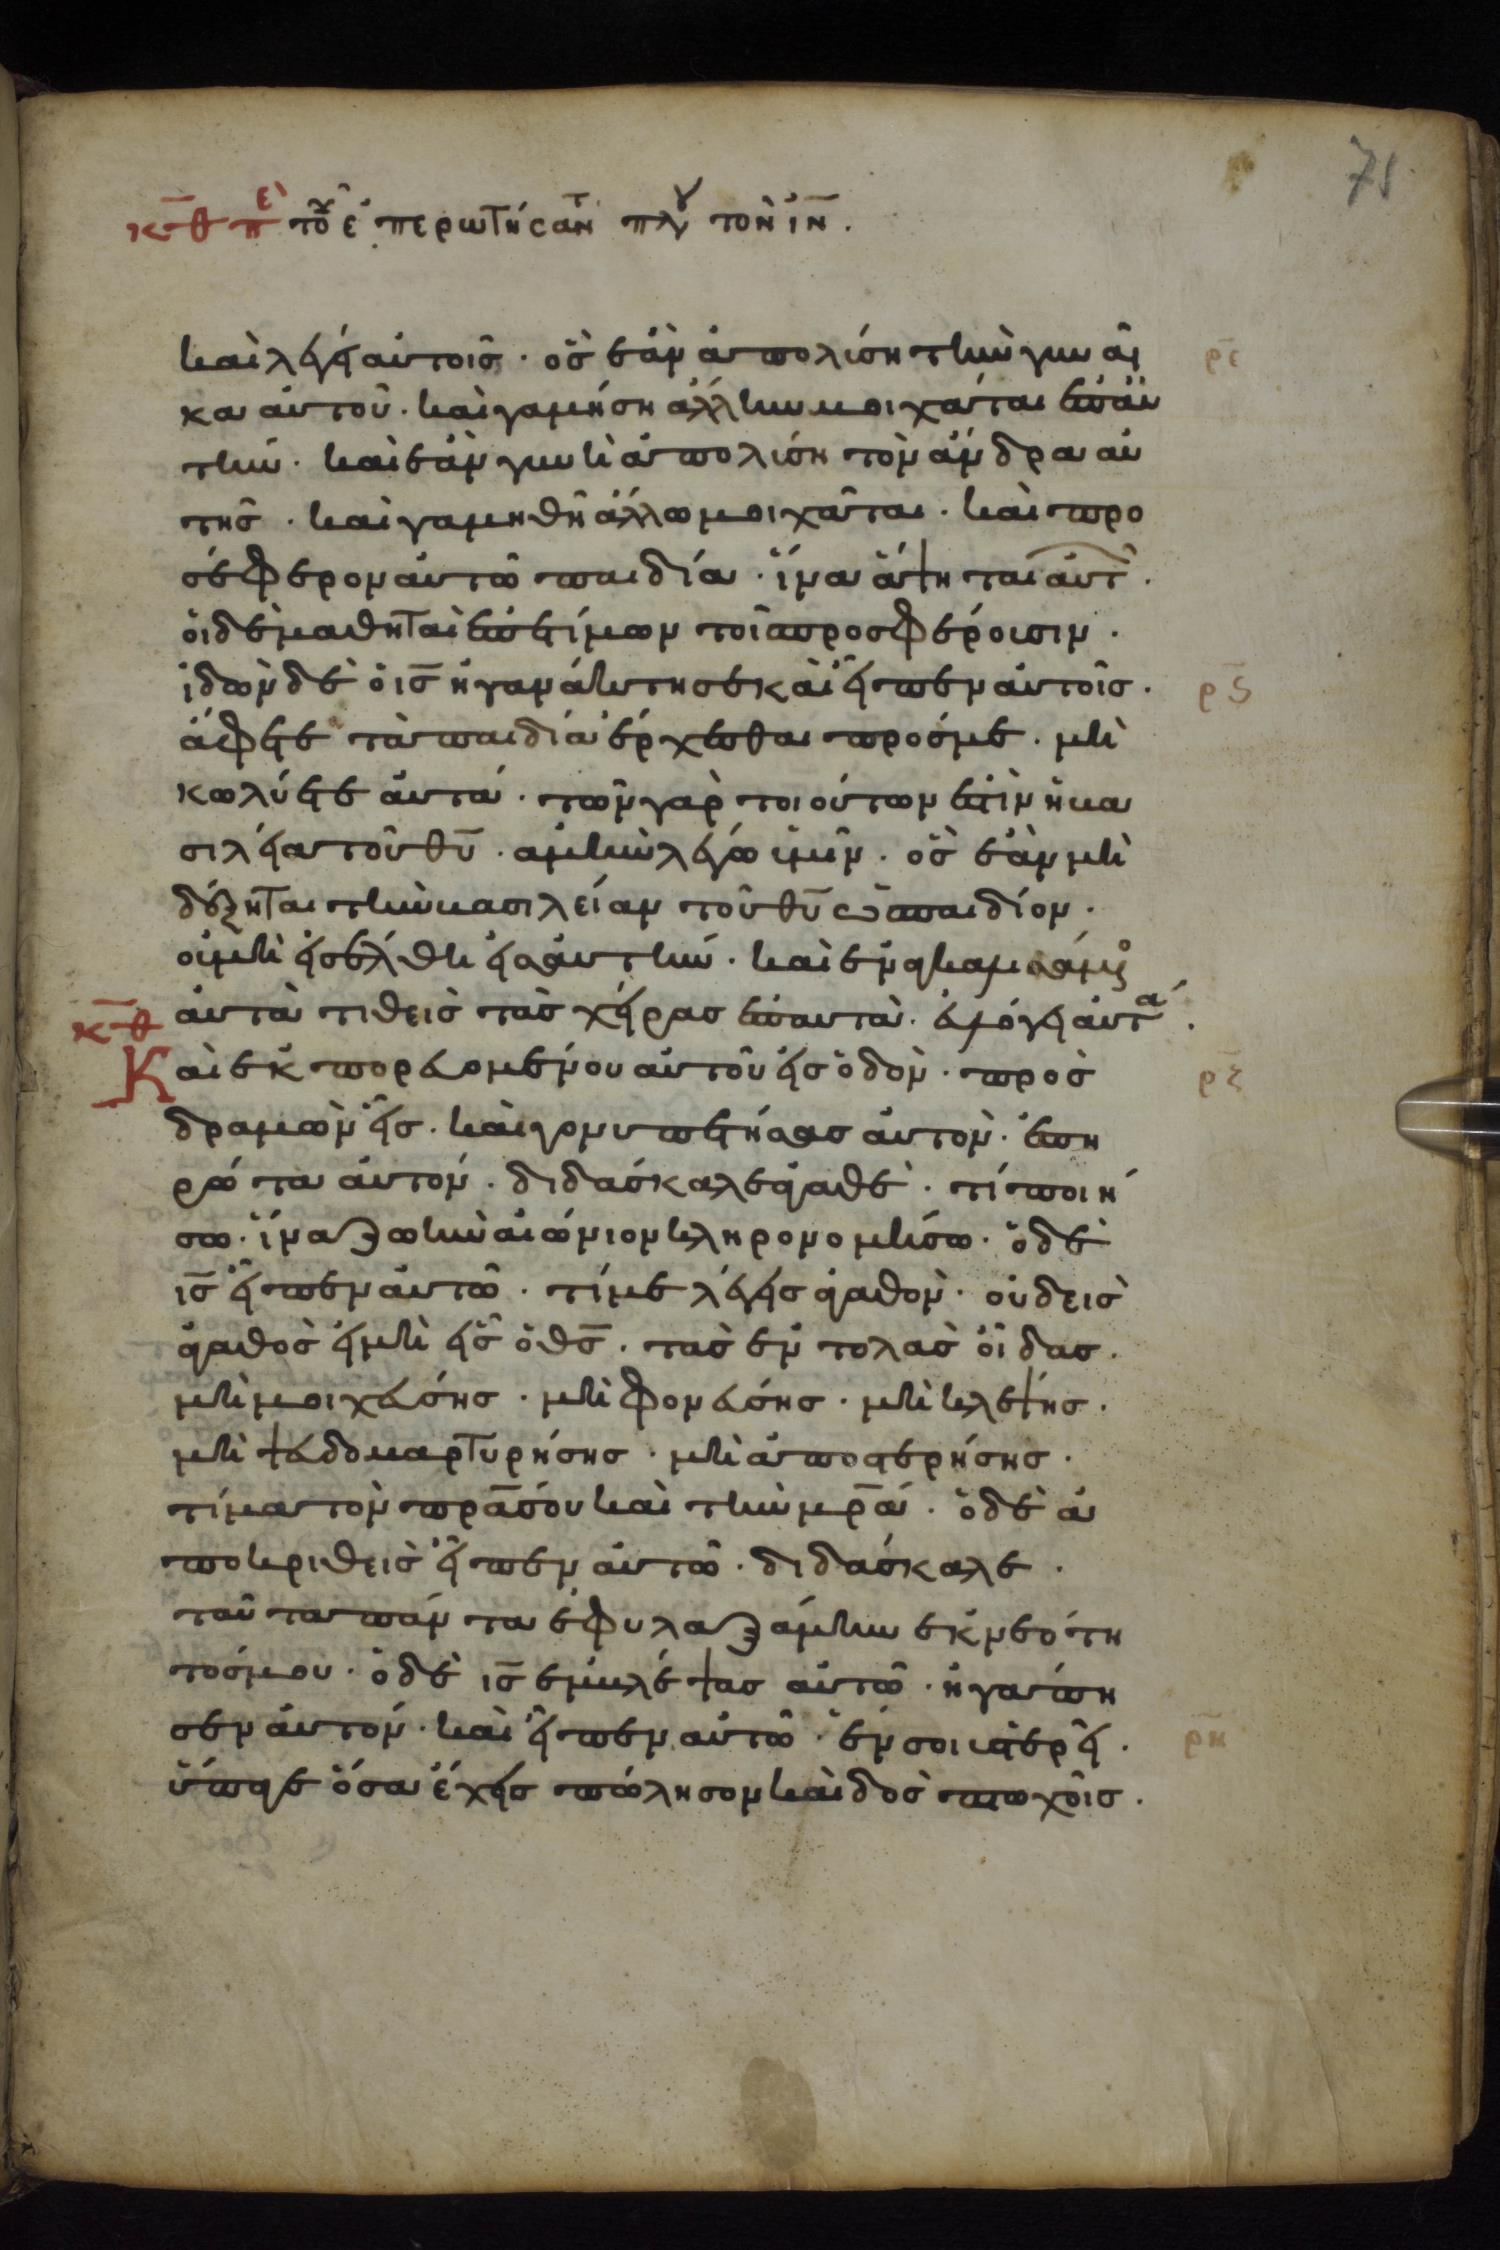 75
κ̅θ̅ πὲ τοῦ ἐπερωτήσαντ πλου τὸν ι̅ν̅.
καὶ λέγει αὐτοῖς · ὃς ἐὰν ἀπολύση τὴν γυναῖ ρ̅ε̅
κα αὐτοῦ · καὶ γαμήση ἄλλην μοιχάται ἐπ᾽ αὐ
τήν · καὶ ἐὰν γυνὴ ἀπολύση τὸν ἄνδρα αὐ
τῆς · καὶ γαμηθῆ ἄλλω μοιχᾶται · καὶ προ
σέφερον αὐτῶ παιδία · ἵνα ἅψηται αὐτ ·
οἱ δὲ μαθηταὶ ἐπετίμων τοῖς προσφέρουσιν ·
ἰδὼν δὲ ὁ ι̅σ̅ ἠγανάκτησε καὶ εἶπεν αὐτοῖς · ρ̅ϛ̅
ἄφετε τὰ παιδία ἔρχεσθαι πρός με · μὴ
κωλύετε αὐτά · τῶν γὰρ τοιούτων ἐστὶν ἡ βα
σιλεία τοῦ θ̅υ̅ · ἀμὴν λέγω ὑμῖν · ὃς ἐὰν μὴ
δέξηται τὴν βασιλείαν τοῦ θ̅υ̅ ὡς παιδίον ·
οὐ μὴ εἰσέλθη εἰς αὐτήν · καὶ ἐναγκαλισάμενο
κ̅θ̅ αὐτὰ τιθεὶς τὰς χεῖρας ἐπ᾽ αὐτὰ · εὐλόγει αὐτά ·
Καὶ ἐκπορευομένου αὐτοῦ εἰς ὁδὸν · προσ ρ̅ζ̅
δραμὼν εἷς · καὶ γονυπετήσας αὐτὸν · ἐπη
ρώτα αὐτόν · διδάσκαλε ἀγαθὲ · τί ποιή
σω · ἵνα ζωὴν αἰώνιον κληρονομήσω · ὁ δὲ
ι̅σ̅ εἶπεν αὐτῶ · τί με λέγεις ἀγαθὸν · οὐδεὶς
ἀγαθὸς εἰ μὴ εἷς ὁ θ̅σ̅ · τὰς ἐντολὰς οἶδας ·
μὴ μοιχεύσης · μὴ φονεύσης · μὴ κλέψης ·
μὴ ψευδομαρτυρήσης · μὴ ἀποστερήσης ·
τίμα τὸν π̅ρ̅α̅ σου καὶ τὴν μ̅ρ̅α̅ · ὁ δὲ ἀ
ποκριθεὶς εἶπεν αὐτῶ · διδάσκαλε ·
ταῦτα πάντα ἐφυλαξάμην ἐκ νεότη
τός μου · ὁ δὲ ι̅σ̅ ἐμβλέψας αὐτῶ · ἠγάπη
σεν αὐτόν · καὶ εἶπεν αὐτῶ · ἕν σοι ὑστερεῖ · ρ̅η̅
ὕπαγε ὅσα ἔχεις πώλησον καὶ δὸς πτωχοῖς ·